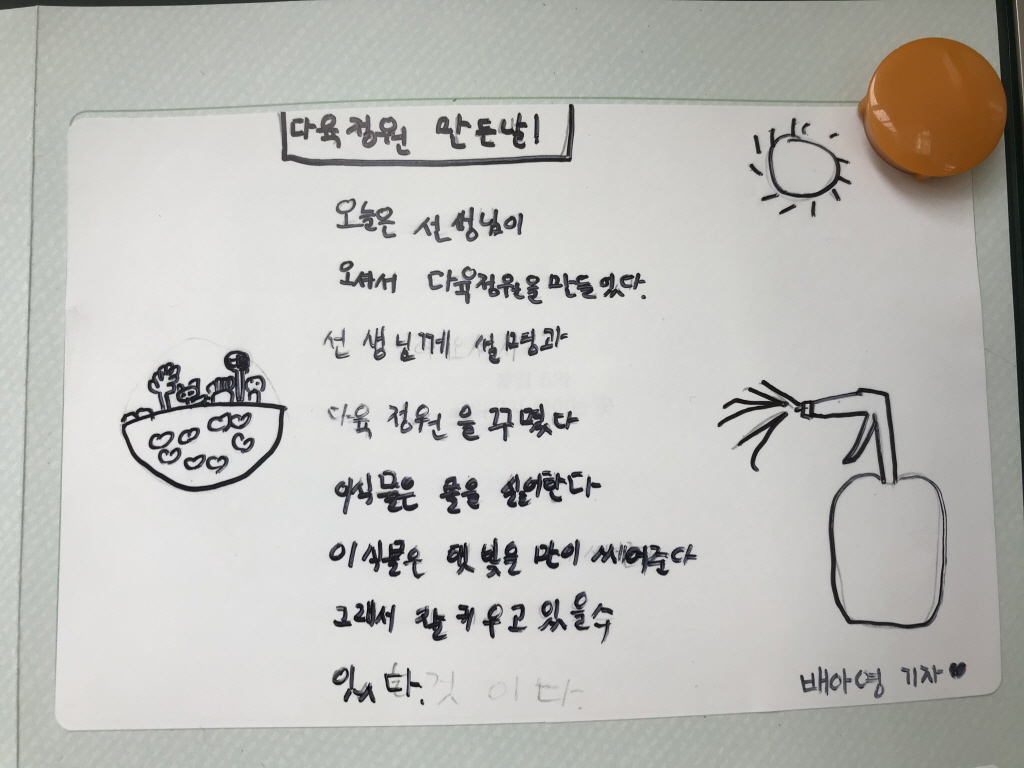 다육정원 만든날!
오늘은 선생님이
오셔서 다육정원을 만들었다.
선생님께 설명과
다육 정원을 꾸몄다
이식물은 물을 싫어한다
이식물은 햇빛을 만이 쐐여준다
그래서 잘 키우고 있을수
있다.
것이다.
배아영 기자